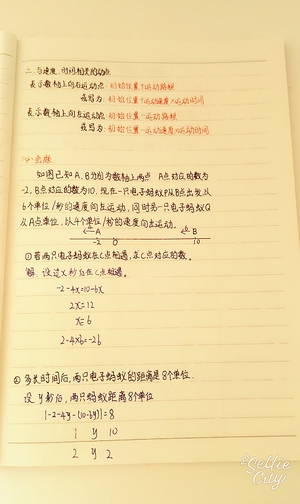 二、与速度、时间相关的动点
表示数轴上向右运动点:初始位置+运动路程
或写为:初始位置+运动速度×运动时间
表示数轴上向左运动点:初始位置-运动路程
或写为:初始位置-运动速度×运动时间
如图已知A、B分别为数轴上两点 A点对应的数为
-2,B点对应的数为10,现在一只电子蚂蚁P从B点出发,以
6个单位/秒的速度向左运动,同时另一只电子蚂蚁Q
从A点单位,以4个单位/秒的速度向左运动.
A B
-2 0 10
①若两只电子蚂蚁在C点相遇,求C点对应的数.
解:设过x秒后在C点相遇.
-2-4x=10-6x
2x=12
x=6
2-4×6=-26
② 多长时间后,两只电子蚂蚁的距离是8个单位.
设y秒后,两只蚂蚁距离8个单位
|-2-4y-(10-6y)|=8
y 10
2 y 2
Selfie
City